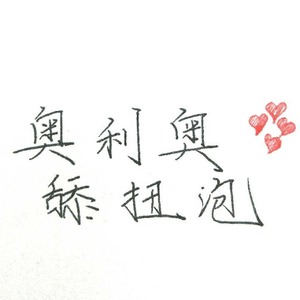 奥利奥
舔扭泡